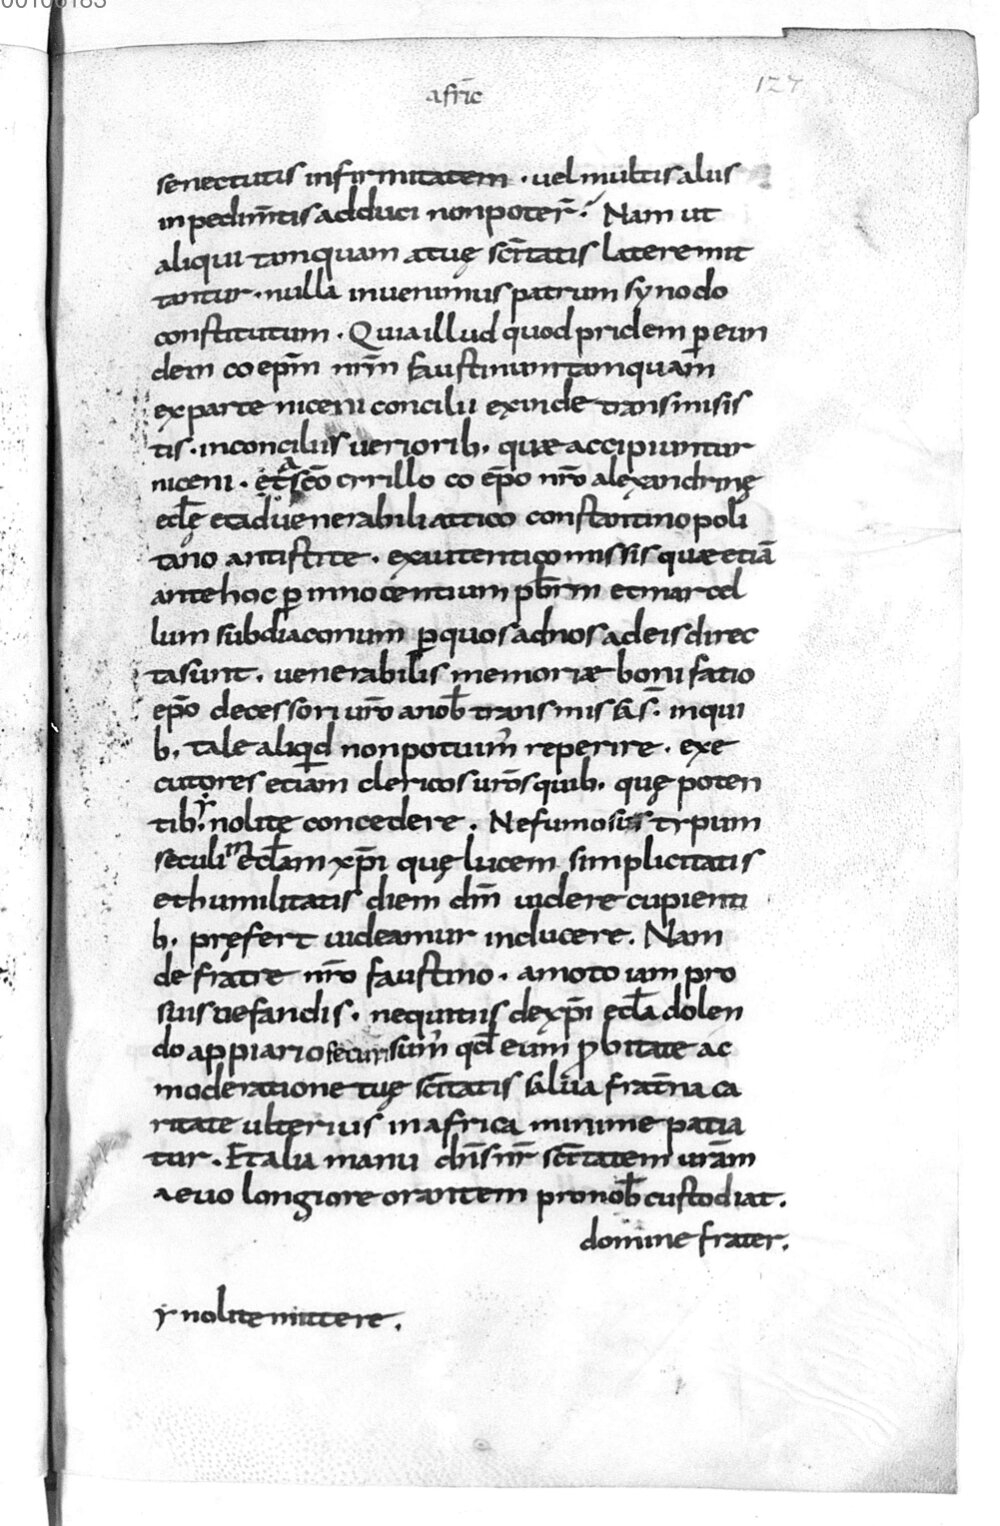 00100183
afric̄
127
senectutis infirmitatem · uel multis aliis
inpedim̄tis adduci non poter̄. Nam ut
aliqui tamquam a tuę sc̄itatis latere mit
tantur · nulla inuenimus patrum synodo
constitutum · Quia illud quod pridem p eun
dem coep̄m nr̄m faustinum tamquam̄
ex parte niceni concilii exinde transmisis
tis · in conciliis uerioriƀ · quæ accipiuntur
niceni · et a sc̄o cyrillo coep̄o nr̄o alexandrinę
ecl̄ę et ad uenerabili attico constantinopoli
tano antistite · ex autentico missis quæ etiā
ante hoc p innocentium pƀrm et marcel
lum subdiaconum p quos ad nos ad eis direc
ta sunt · uenerabilis memoriæ bonifatio
ep̄o decessori ur̄o a noƀ transmissa s̄ · in qui
b · tale aliqid non potuim̄ reperire · exe
cutores etiam clericos ur̄os quib · quę poten
tib · r nolite concedere · Ne fumosus typum
seculi in ecl̄am xp̄i quę lucem simplicitatis
et humilitatis diem dm̄ uidere cupienti
b · pręfert uideamur inducere · Nam
de fratre nr̄o faustino · amoto iam pro
suis nefandis · nequitiis de xp̄i ecl̄a dolen
do appiario securi sum̄ qd eum p̄bitate ac
moderatione tuę sc̄itatis salua frat̄na ca
ritate ulterius in africa minime patia
tur · Et alia manu dn̄s nr̄ sc̄itatem ur̄am
aeuo longiore orantem pro noƀ custodiat ·
domine frater ·
r nolite mittere ·